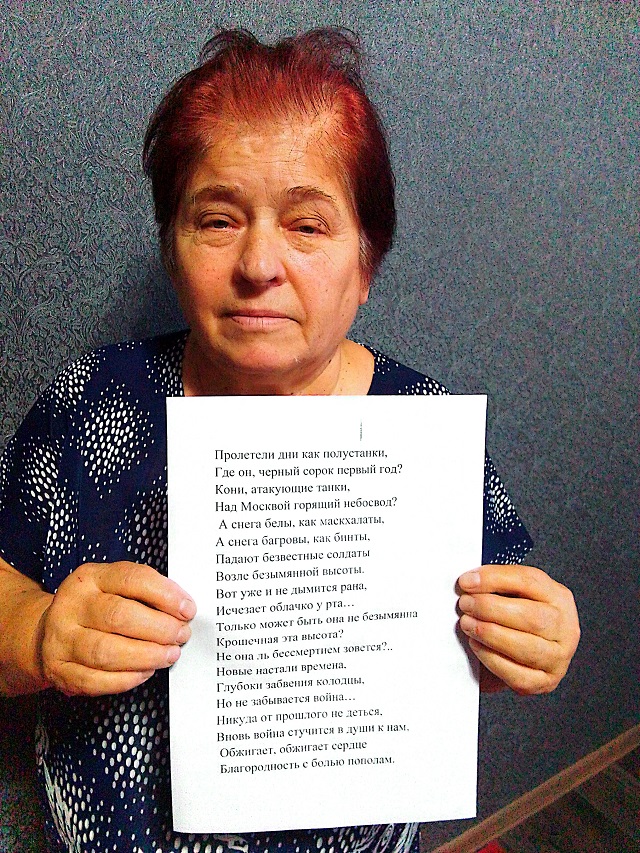 Пролетели дни как полустанки,
Где он, черный сорок первый год?
Кони, атакующие танки,
Над Москвой горящий небосвод?
А снега белы, как маскхалаты,
А снега багровы, как бинты,
Падают безвестные солдаты
Возле безымянной высоты.
Вот уже и не дымится рана,
Исчезает облачко у рта…
Только может быть она не безымянна
Крошечная эта высота?
Не она ль бессмертием зовется?..
Новые настали времена,
Глубоки забвения колодцы,
Но не забывается война…
Никуда от прошлого не деться,
Вновь война стучится в души к нам,
Обжигает, обжигает сердце
Благородность с болью пополам.